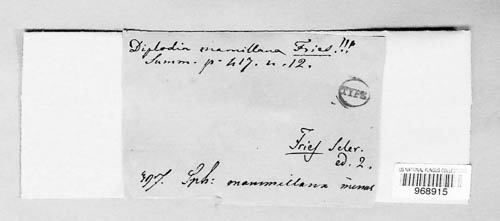 Diplodia mamillana Fries!!!
Summ. p. 417. n. 12.
TYPE
Fries Scler.
ed. 2.
397. Sph: mammillana minus
US NATIONAL FUNGUS COLLECTIONS
968915